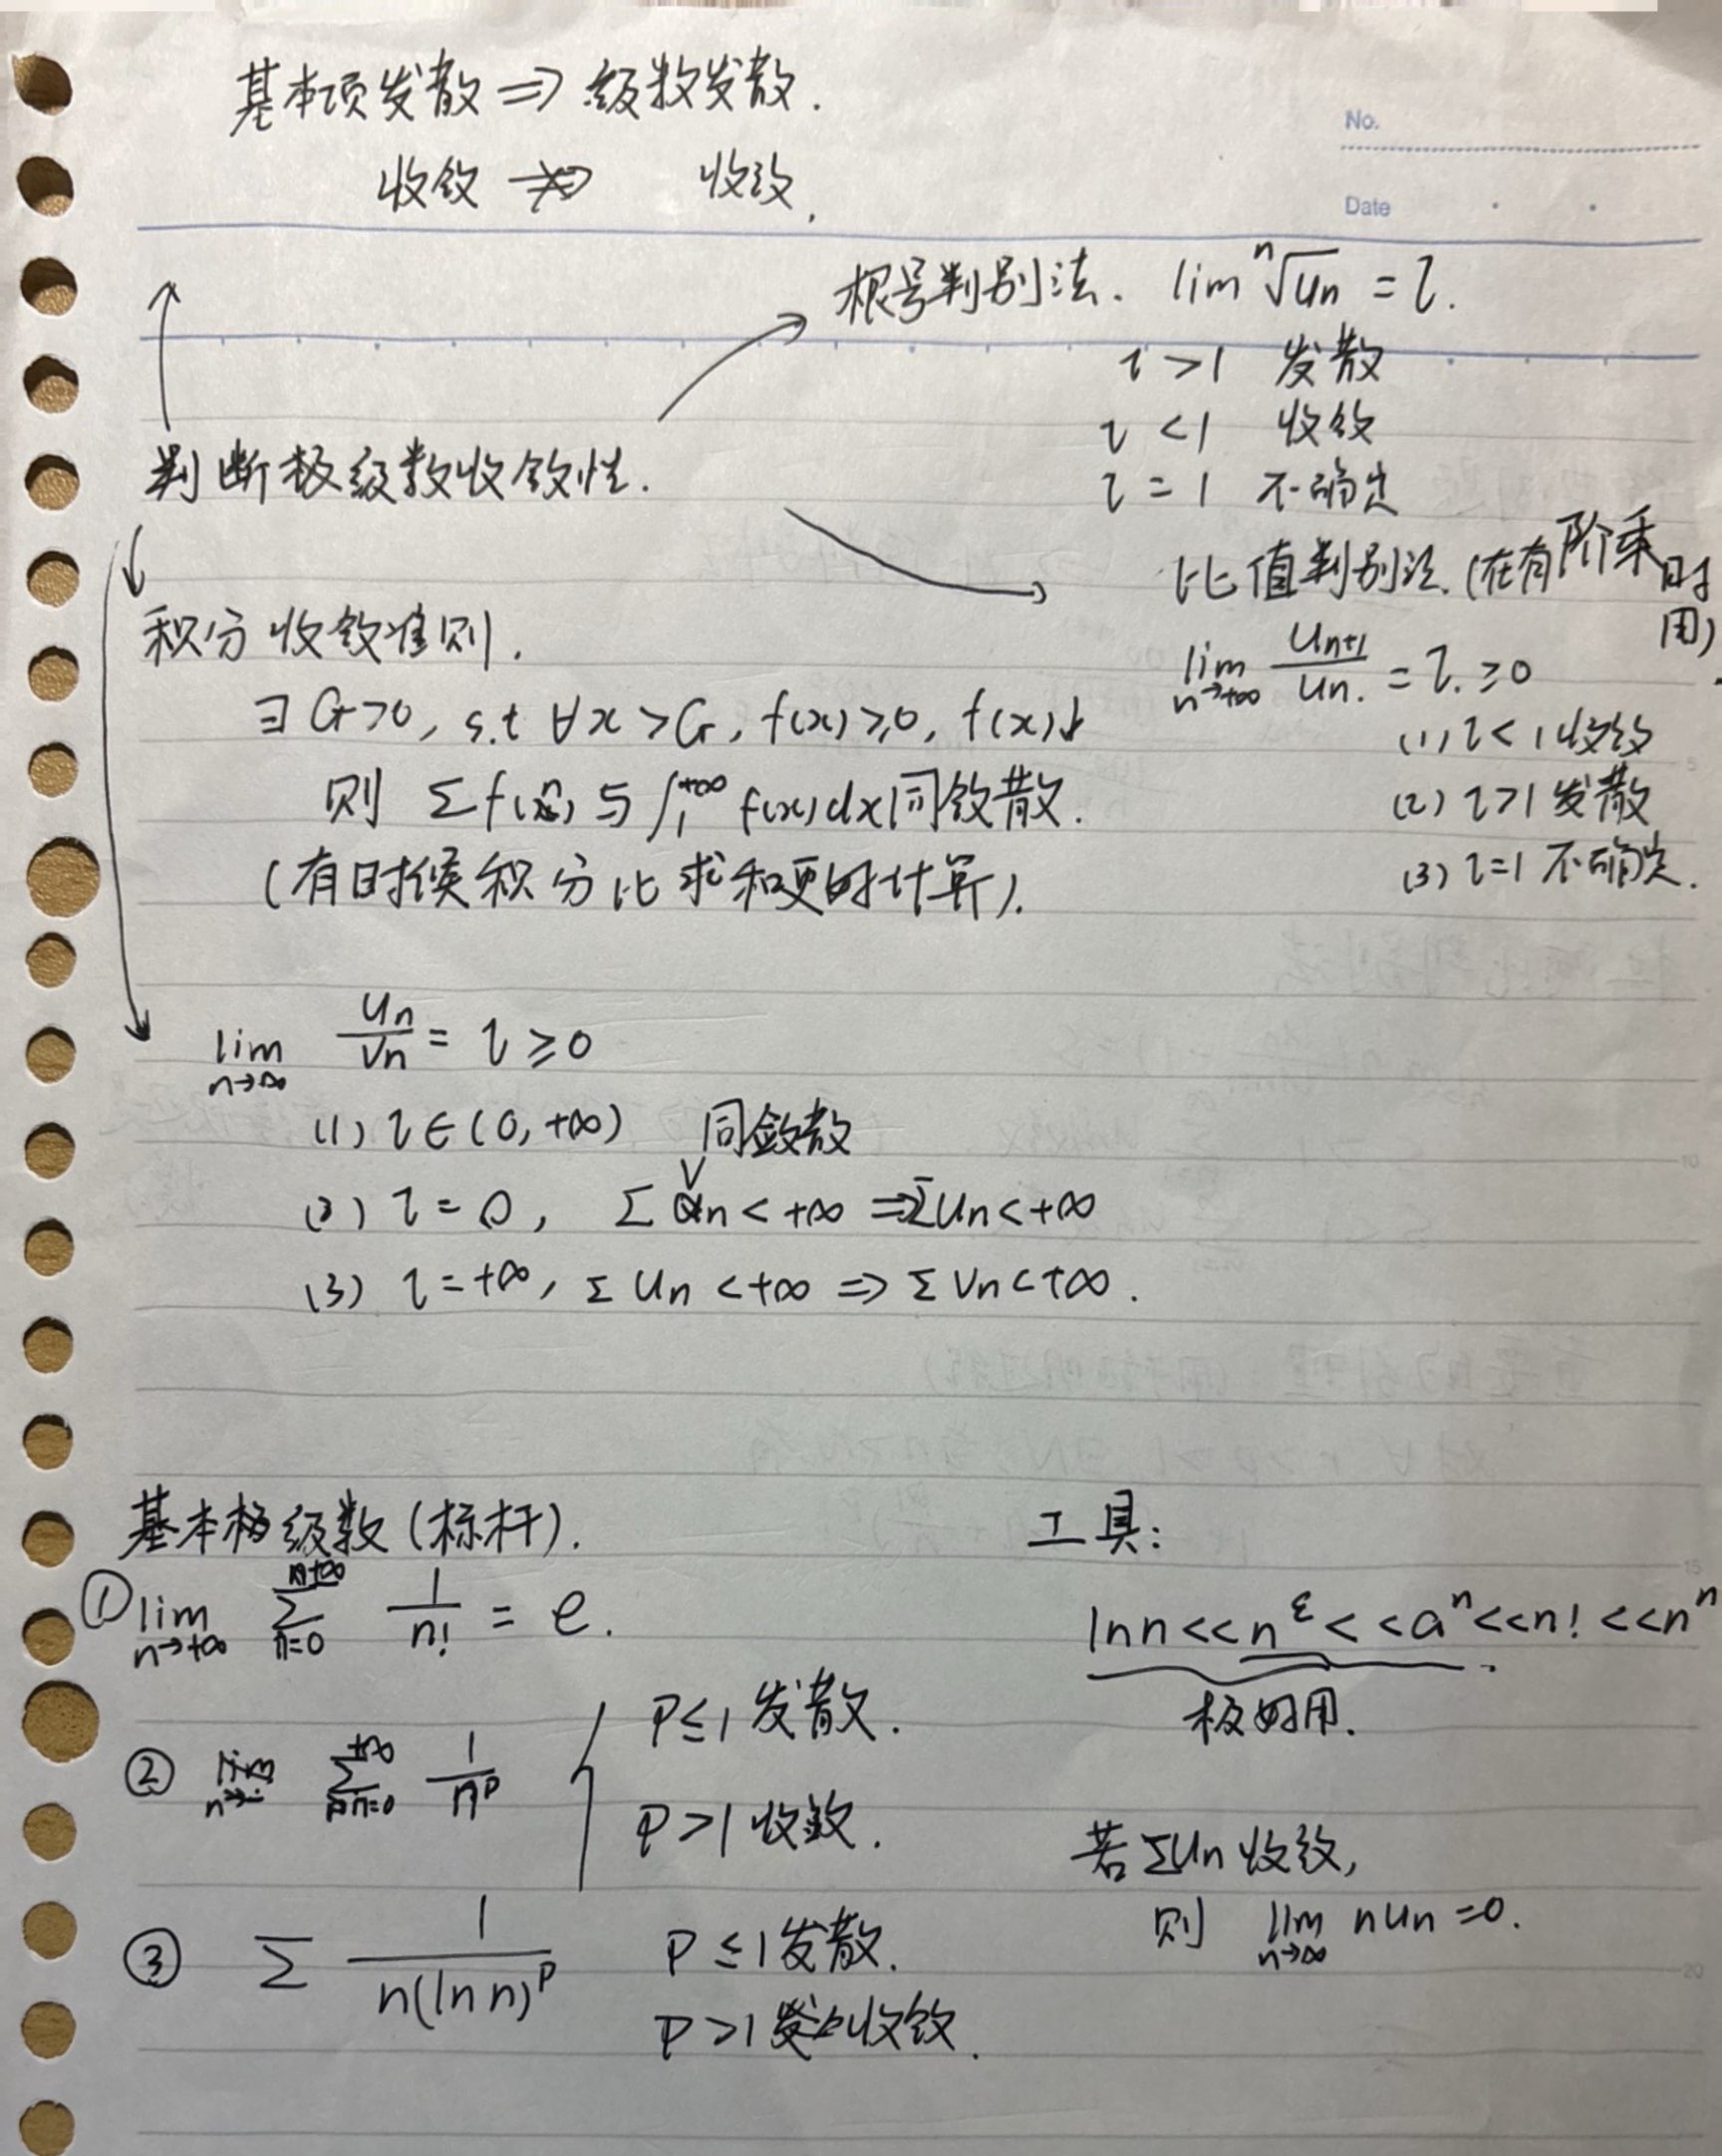 基本项发散 ⇒ 级数发散.
收敛 ⇏ 收敛.
No.
Date
根号判别法. lim ⁿ√un = l.
l > 1 发散
l < 1 收敛
l = 1 不确定
判断级数收敛性.
比值判别法. (在有阶乘时用)
lim n→+∞ un+1/un. = l. ≥ 0
(1) l < 1 收敛
(2) l > 1 发散
(3) l = 1 不确定.
积分收敛准则.
∃ G>0, s.t ∀x > G, f(x) ≥ 0, f(x)↓
则 Σ f(n) 与 ∫₁^{+∞} f(x)dx 同敛散.
(有时候积分比求和更好计算).
lim n→∞ un/vn = l ≥ 0
(1) l ∈ (0, +∞) 同敛散
(2) l = 0, Σ vn < +∞ ⇒ Σ un < +∞
(3) l = +∞, Σ un < +∞ ⇒ Σ vn < +∞.
基本级数 (标杆).
① lim n→+∞ Σ n=0 1/n! = e.
② Σ n=0 +∞ 1/n^p
P ≤ 1 发散.
P > 1 收敛.
③ Σ 1/(n(ln n)^p)
P ≤ 1 发散.
P > 1 收敛.
工具:
ln n << n^ε << a^n << n! << n^n
极好用.
若 Σun 收敛,
则 lim n→∞ n un = 0.
5
10
15
20